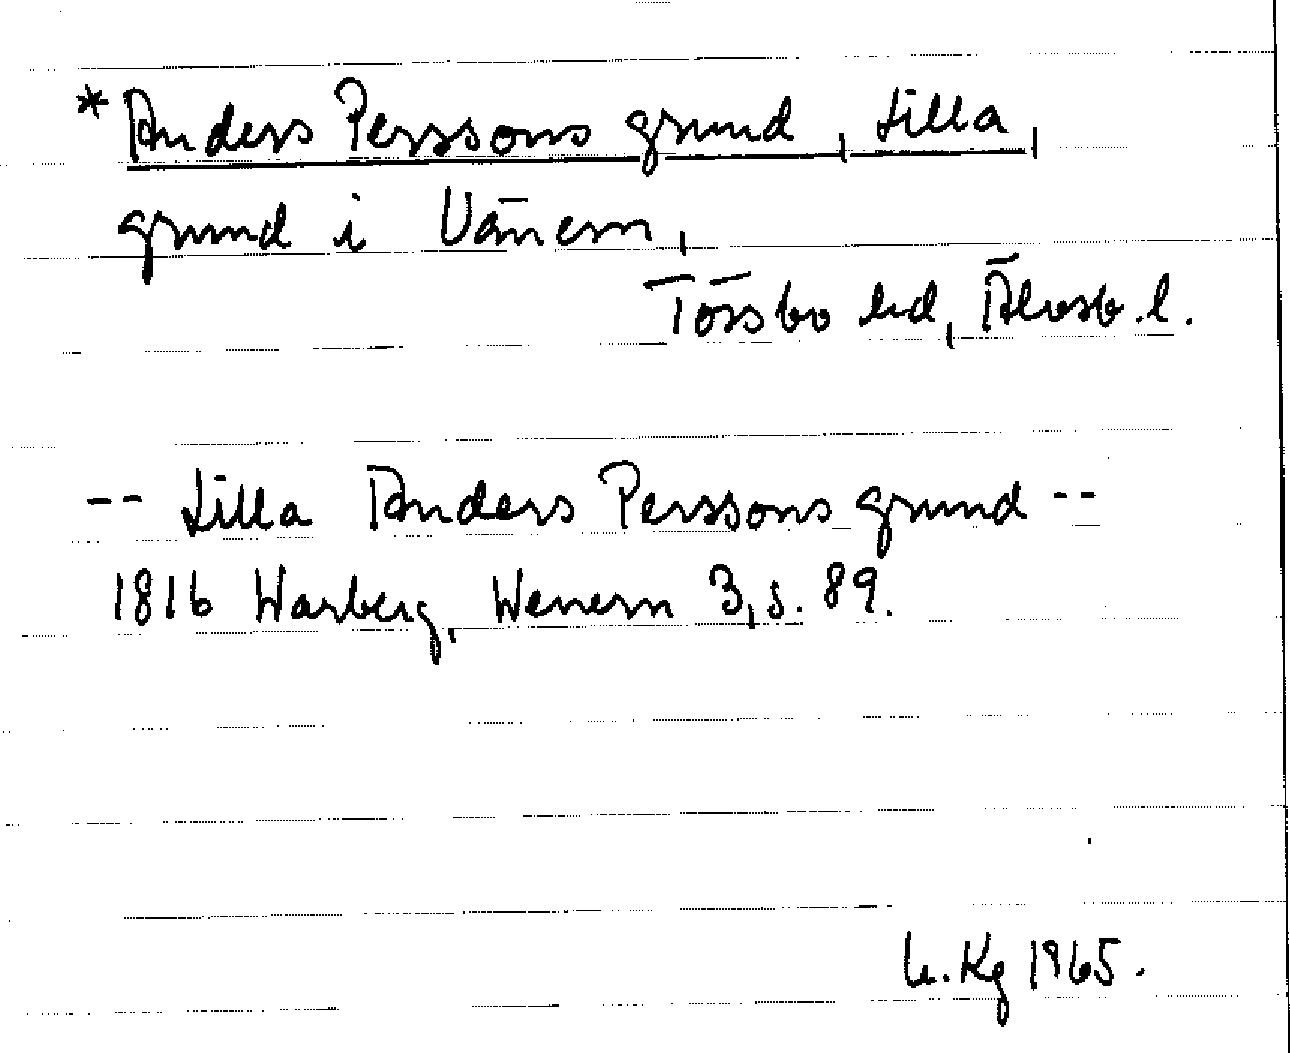 * Anders Perssons grund, Lilla,
grund i Vänern,
Tössbo hd, Älvsb. l.
-- Lilla Anders Perssons grund --
1816 Warberg, Wenern 3, s. 89.
Kg 1965.